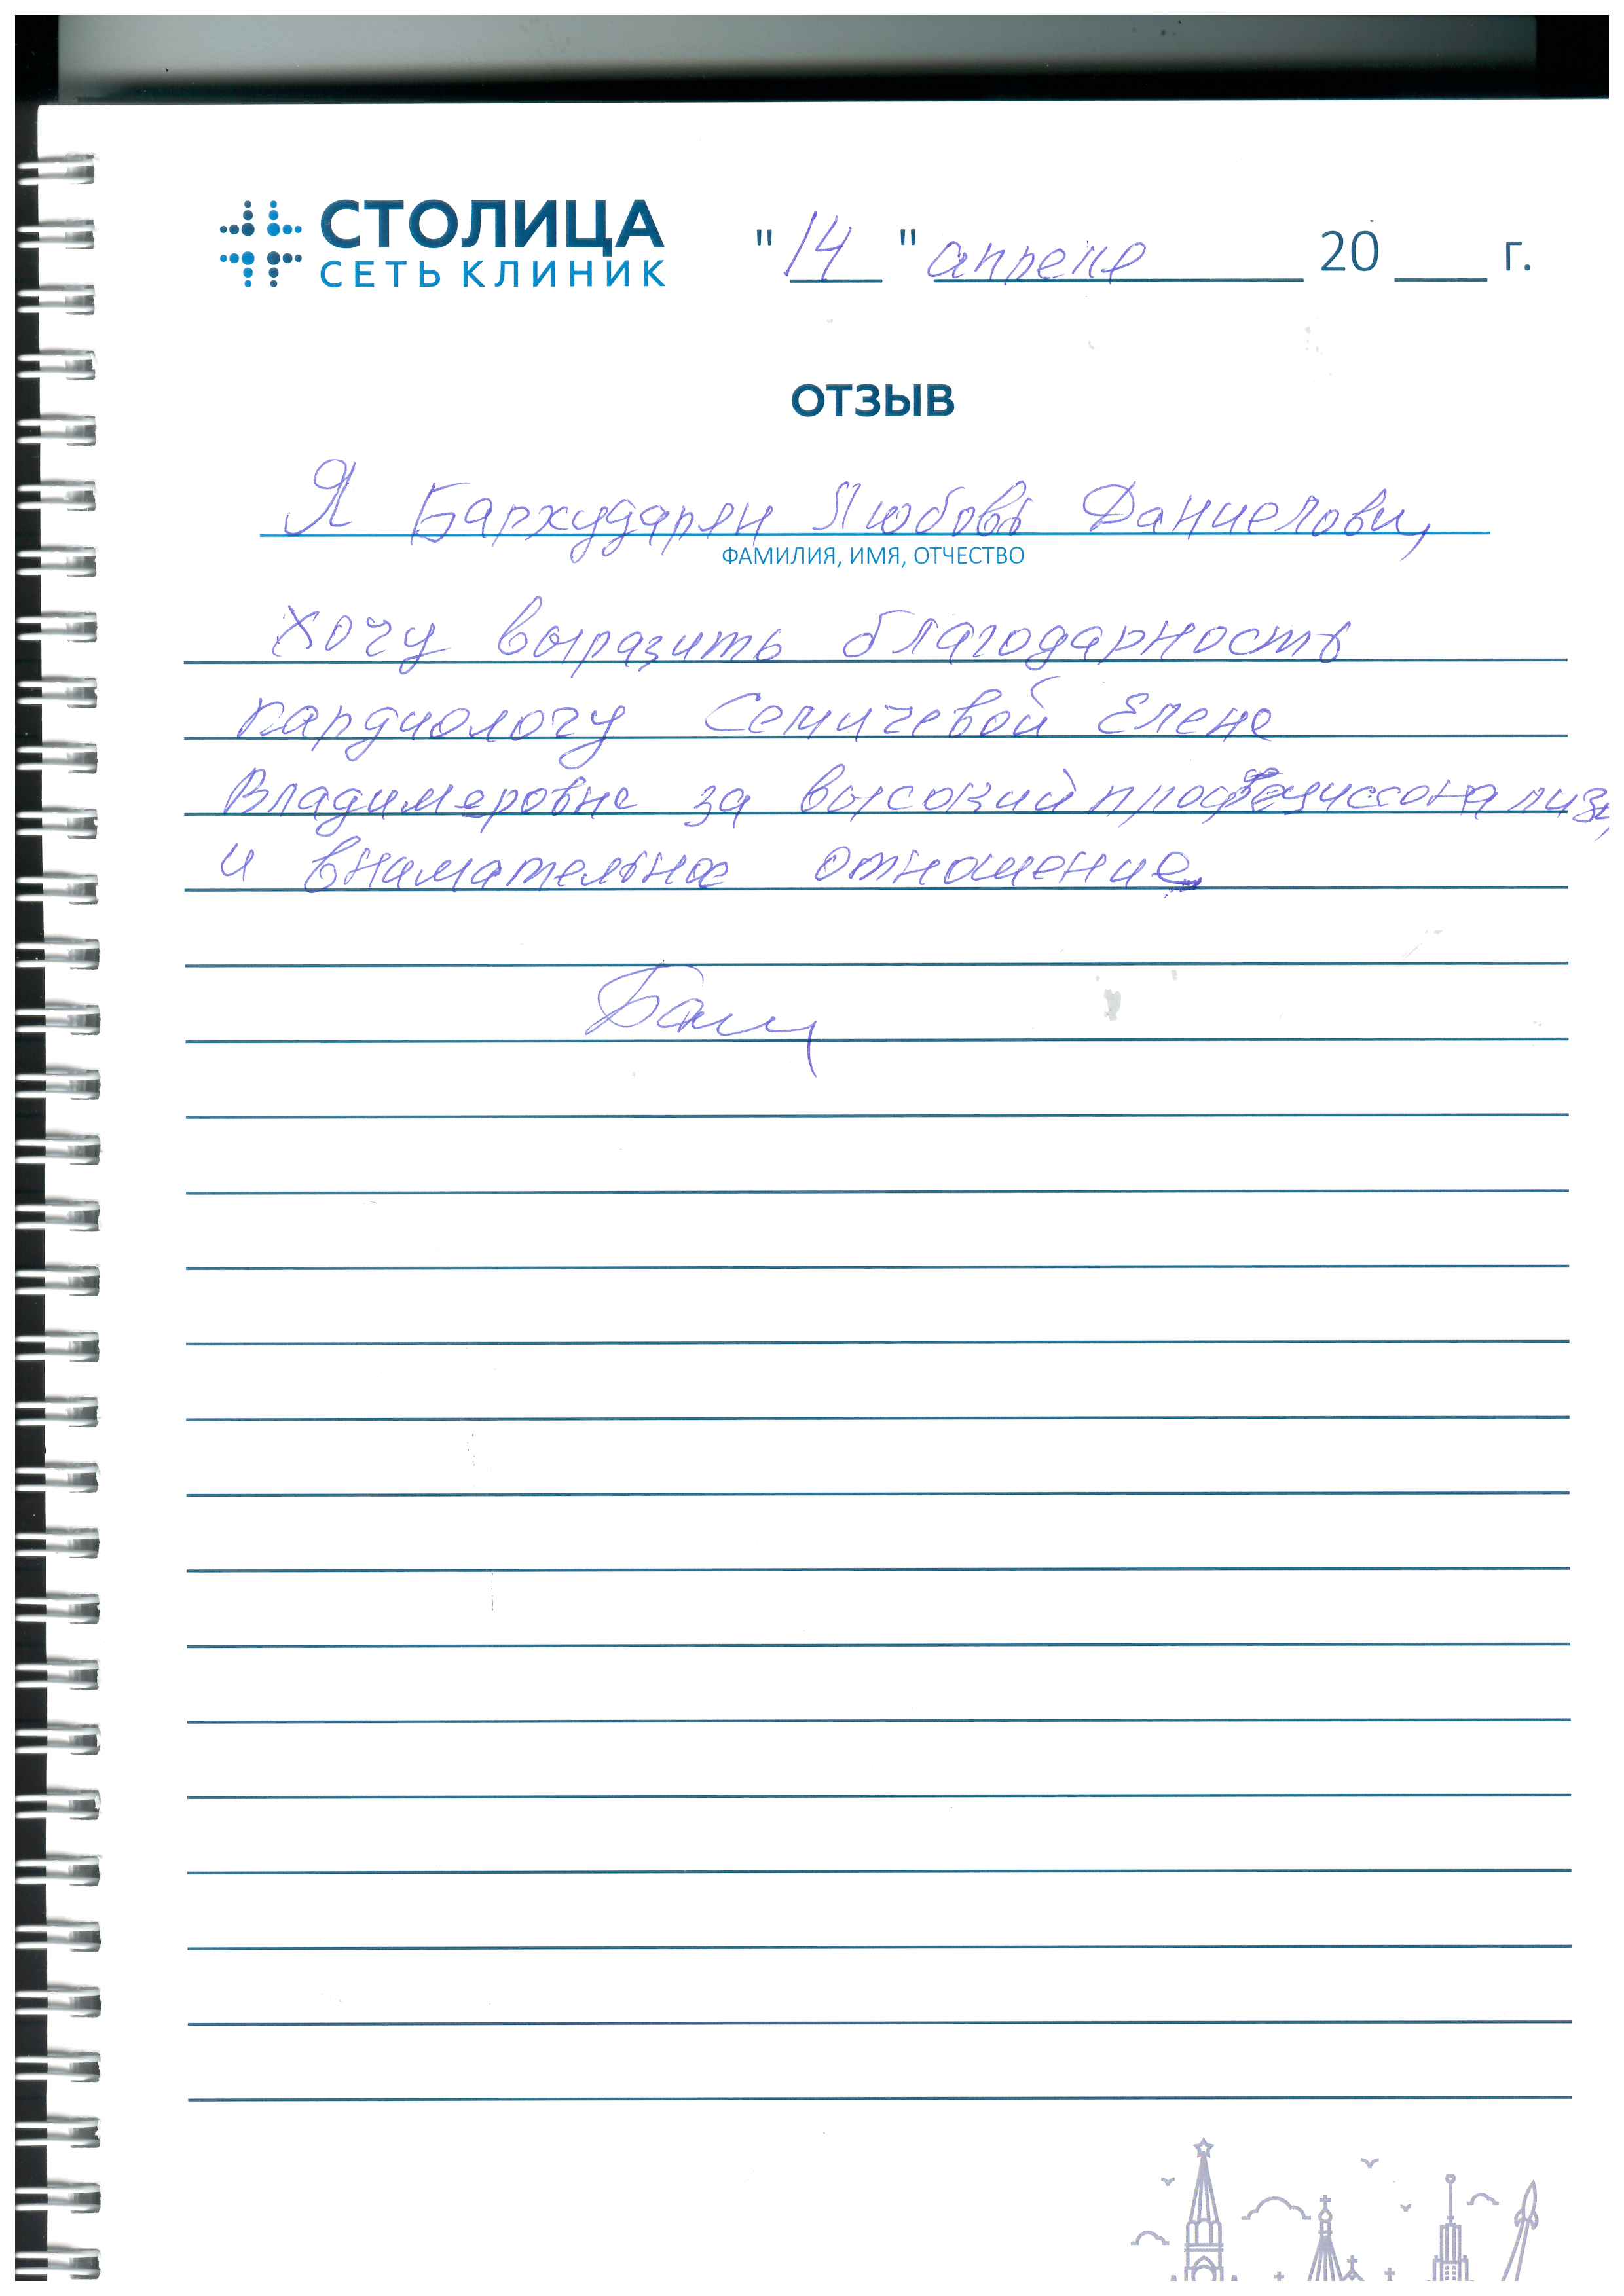 СТОЛИЦА
СЕТЬ КЛИНИК
"14" апреля 20 ____ г.
ОТЗЫВ
Я Бархударян Любовь Даниелови,
ФАМИЛИЯ, ИМЯ, ОТЧЕСТВО
Хочу выразить благодарность
кардиологу Семичевой Елене
Владимеровне за высокий профециссонализ
и внимательное отношение